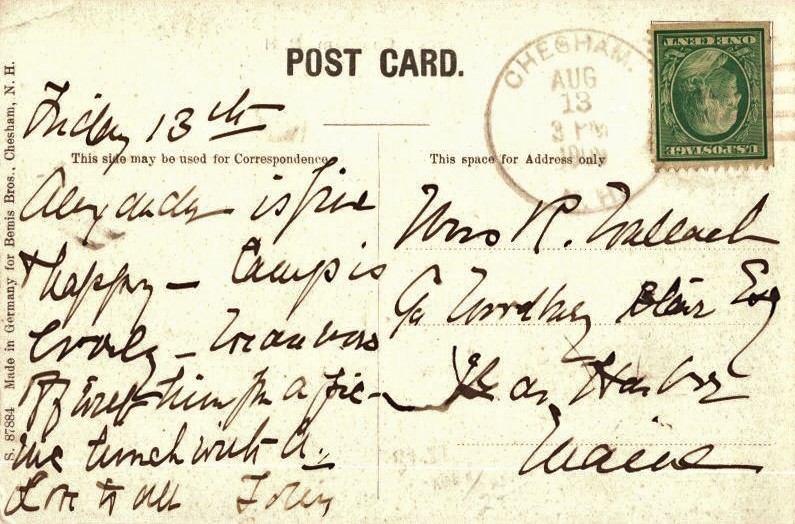 POST CARD.
CHESHAM.
AUG
13
3 PM
N. H.
U.S. POSTAGE
ONE CENT
S. 87884 Made in Germany for Bemis Bros., Chesham, N. H.
This side may be used for Correspondence
This space for Address only
Friday 13th
is fine
& happy – Camp is
lovely –
off with him for a pic-
nic lunch with A.
Love to all
Mrs R. Wallach
Blair Esq
Bar Harbor
Maine